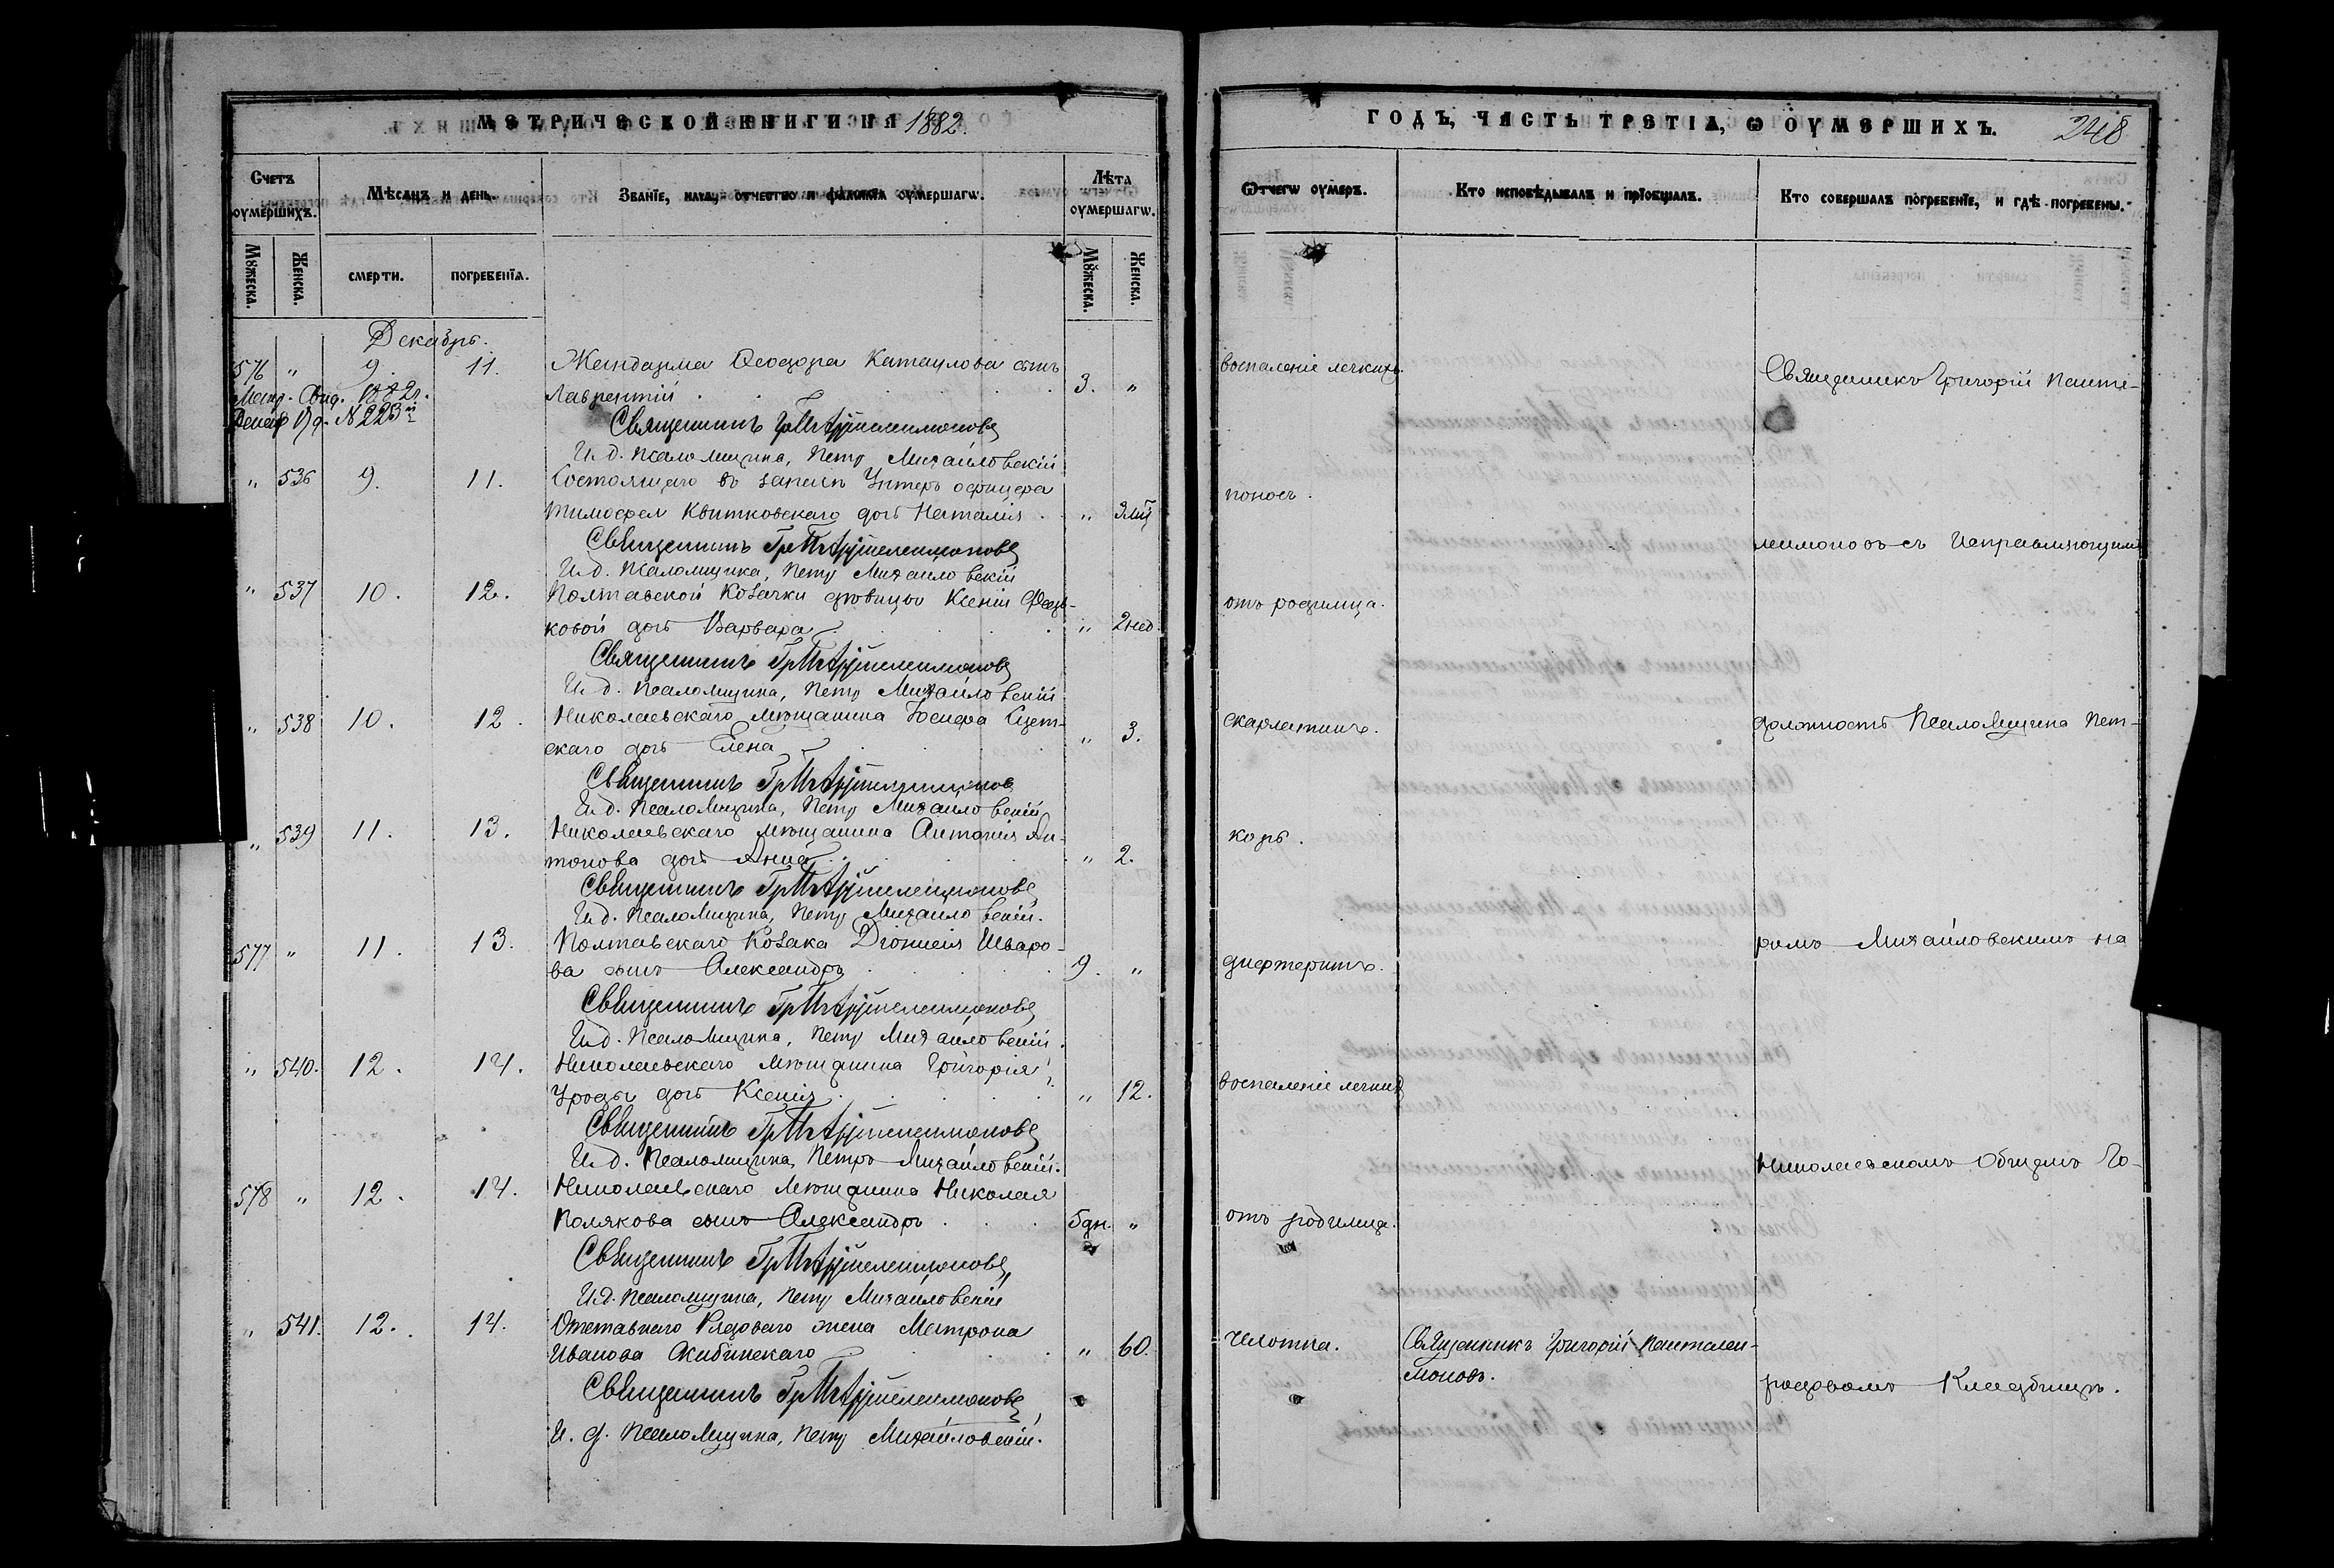 МЕТРИЧЕСКОЙ КНИГИ НА 1882.
Счетъ оумершихъ.
Мѣсяцъ и день.
Званїе, имя, отчество и фамилїя оумершагѡ.
Лѣта оумершагѡ.
Мꙋжеска.
Женска.
смерти.
погребенїѧ.
Мꙋжеска.
Женска.
Декабрь.
576 " 9. 11. Жандарма Ѳеодора сынъ
Лаврентій . 3. "
Метр. Свид. 1882 г.
№ 223
Священникъ Гр. Пантелеимоновъ
И. д. Псаломщика, Петръ Михайловскій
" 536 9. 11. Состоящаго въ запасѣ Унтеръ офицера
Тимоѳея Квитковскаго дочь Наталія . " 3 мѣ
Священникъ Гр. Пантелеимоновъ
И. д. Псаломщика, Петръ Михайловскій
" 537 10. 12. Полтавской козачки дѣвицы Ксеніи
ковой дочь Варвара . " 2 нед.
Священникъ Гр. Пантелеимоновъ
И. д. Псаломщика, Петръ Михайловскій
" 538 10. 12. Николаевскаго мѣщанина Іосифа
скаго дочь Елена . " 3.
Священникъ Гр. Пантелеимоновъ
И. д. Псаломщика, Петръ Михайловскій
" 539 11. 13. Николаевскаго мѣщанина Антонія Ан-
тонова дочь Анна . " 2.
Священникъ Гр. Пантелеимоновъ
И. д. Псаломщика, Петръ Михайловскій.
577 " 11. 13. Полтавскаго козака Діонисія Шваро-
ва сынъ Александръ . 9. "
Священникъ Гр. Пантелеимоновъ
И. д. Псаломщика, Петръ Михайловскій.
" 540. 12. 14. Николаевскаго мѣщанина Григорія
дочь Ксенія . " 12.
Священникъ Гр. Пантелеимоновъ
И. д. Псаломщика, Петръ Михайловскій.
578 " 12. 14. Николаевскаго мѣщанина Николая
Полякова сынъ Александръ . 5 дн. "
Священникъ Гр. Пантелеимоновъ
И. д. Псаломщика, Петръ Михайловскій
" 541. 12. 14. Отставнаго Рядоваго жена Матрона
Иванова Скибинскаго . " 60.
Священникъ Гр. Пантелеимоновъ
И. д. Псаломщика, Петръ Михайловскій.
ГОДЪ, ЧАСТЬ ТРЕТІѦ, Ѡ ОУМЕРШИХЪ. 248
Ѿчегѡ оумеръ.
Кто исповѣдывалъ и прїобщалъ.
Кто совершалъ погребенїе, и гдѣ погребены.
воспаленіе легкихъ.
Священникъ Григорій Панте-
поносъ.
леимоновъ съ Исправляющимъ
отъ родимца.
скарлатина.
должность Псаломщика Пет-
корь.
ромъ Михайловскимъ на
дифтеритъ.
воспаленіе легкихъ
Николаевскомъ Общемъ Го-
отъ родимца.
чахотка.
Священникъ Григорій Пантелеи-
моновъ.
родовомъ Кладбищѣ.